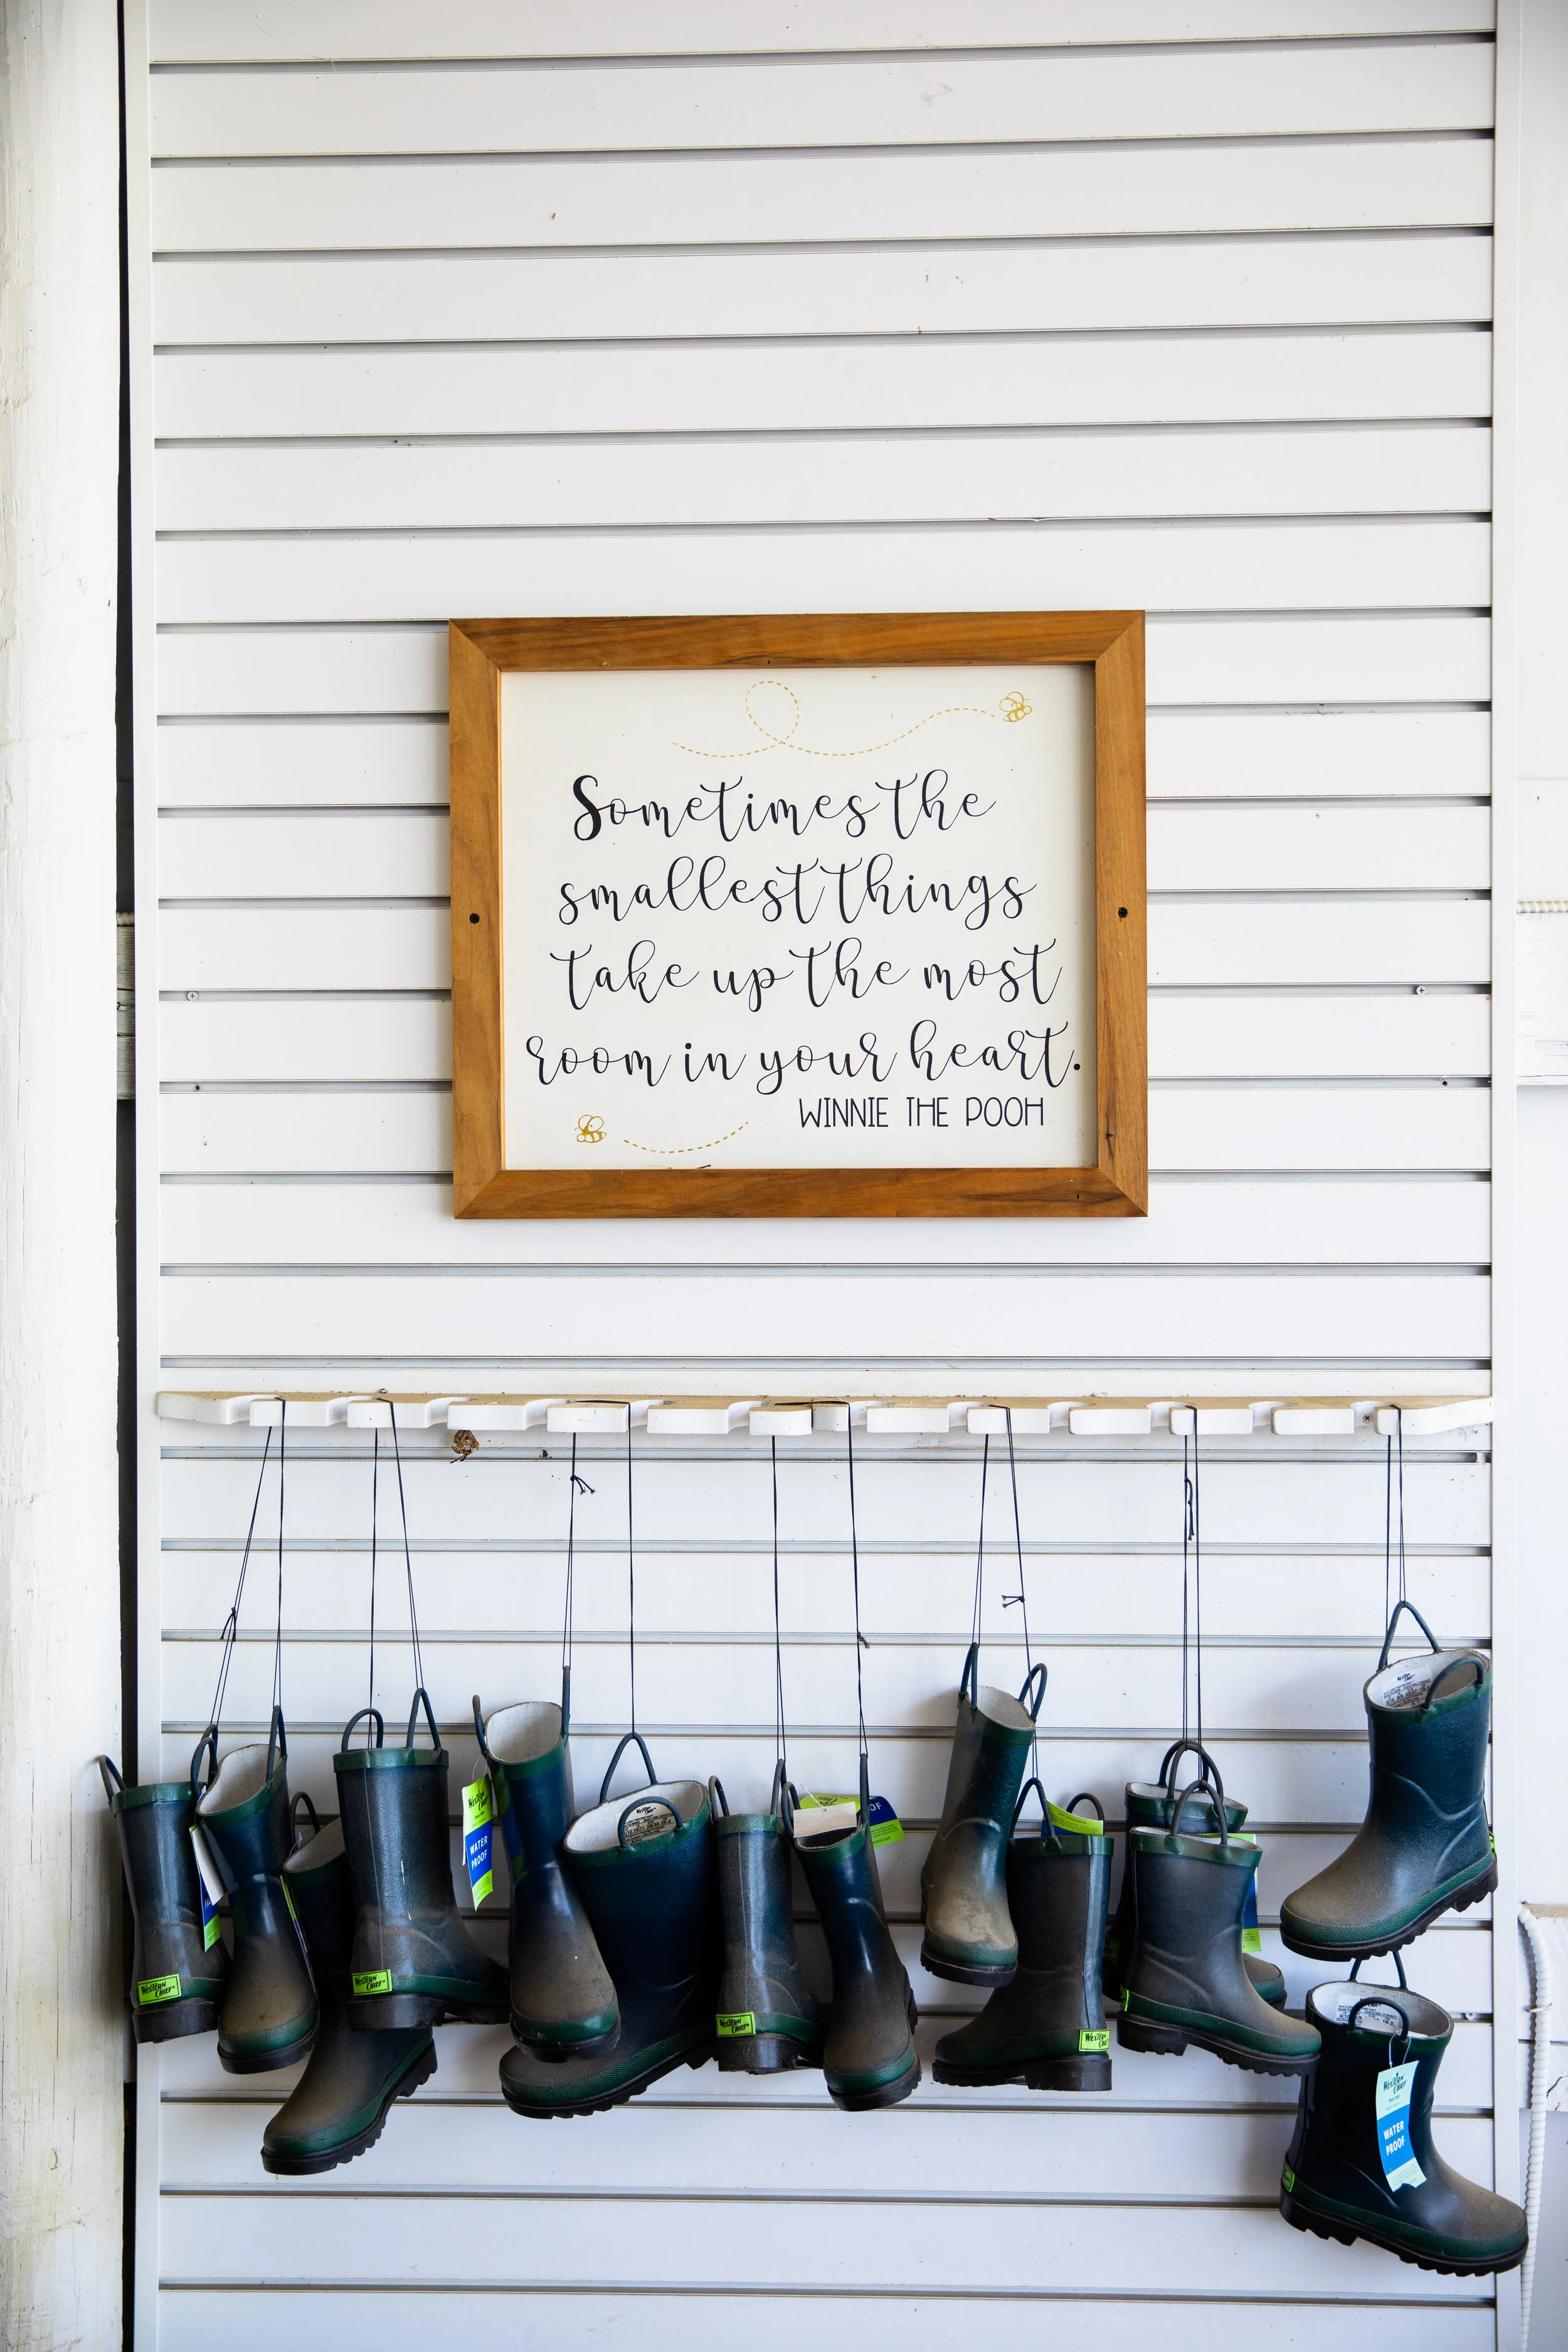 Sometimes the
smallest things
take up the most
room in your heart.
WINNIE THE POOH
WATER
PROOF
OF
WESTERN
CHIEF
WESTERN
CHIEF
WESTERN
CHIEF
WESTERN
WESTERN
CHIEF
WATER
PROOF